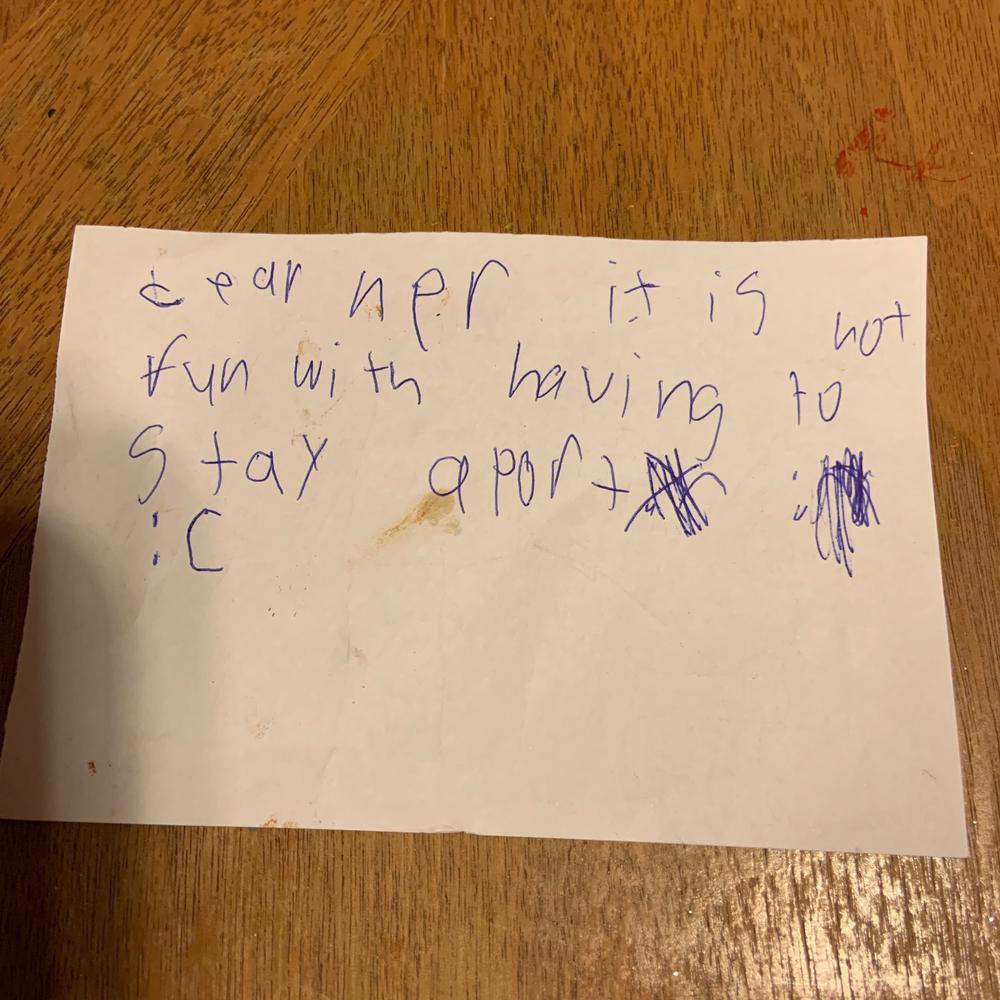 dear her it is not
fun with having to
stay apart
:C